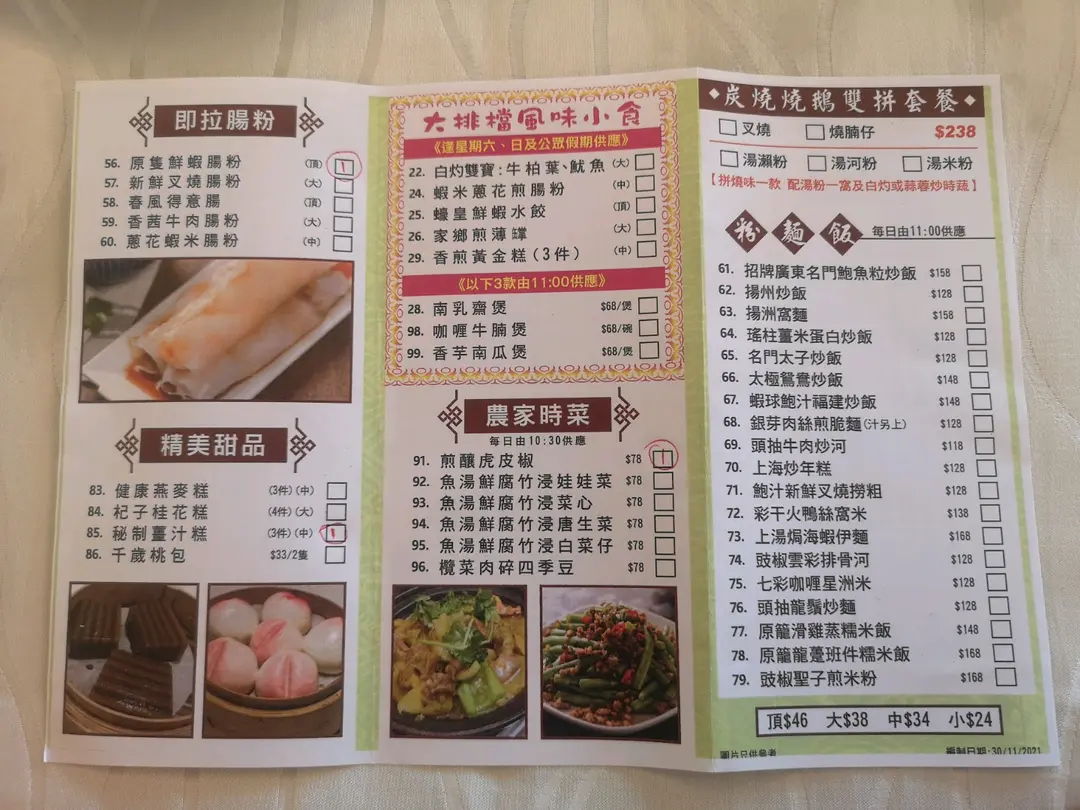 即拉腸粉
56. 原隻鮮蝦腸粉 (頂) 1
57. 新鮮叉燒腸粉 (大)
58. 春風得意腸 (頂)
59. 香茜牛肉腸粉 (大)
60. 蔥花蝦米腸粉 (中)
精美甜品
83. 健康燕麥糕 (3件)(中)
84. 杞子桂花糕 (4件)(大)
85. 秘制薑汁糕 (3件)(中) 1
86. 千歲桃包 $33/2隻
大排檔風味小食
《逢星期六、日及公眾假期供應》
22. 白灼雙寶:牛柏葉、魷魚 (大)
24. 蝦米蔥花煎腸粉 (中)
25. 蠔皇鮮蝦水餃 (頂)
26. 家鄉煎薄罉 (大)
29. 香煎黃金糕(3件) (中)
《以下3款由11:00供應》
28. 南乳齋煲 $68/煲
98. 咖喱牛腩煲 $68/碗
99. 香芋南瓜煲 $68/煲
農家時菜
每日由10:30供應
91. 煎釀虎皮椒 $78 1
92. 魚湯鮮腐竹浸娃娃菜 $78
93. 魚湯鮮腐竹浸菜心 $78
94. 魚湯鮮腐竹浸唐生菜 $78
95. 魚湯鮮腐竹浸白菜仔 $78
96. 欖菜肉碎四季豆 $78
炭燒燒鵝雙拼套餐
叉燒 燒腩仔 $238
湯瀨粉 湯河粉 湯米粉
【拼燒味一款 配湯粉一窩及白灼或蒜蓉炒時蔬】
粉麵飯 每日由11:00供應
61. 招牌廣東名門鮑魚粒炒飯 $158
62. 揚州炒飯 $128
63. 揚洲窩麵 $158
64. 瑤柱薑米蛋白炒飯 $128
65. 名門太子炒飯 $128
66. 太極鴛鴦炒飯 $148
67. 蝦球鮑汁福建炒飯 $148
68. 銀芽肉絲煎脆麵(汁另上) $128
69. 頭抽牛肉炒河 $118
70. 上海炒年糕 $128
71. 鮑汁新鮮叉燒撈粗 $128
72. 彩干火鴨絲窩米 $138
73. 上湯焗海蝦伊麵 $168
74. 豉椒雲彩排骨河 $128
75. 七彩咖喱星洲米 $128
76. 頭抽龍鬚炒麵 $128
77. 原籠滑雞蒸糯米飯 $148
78. 原籠龍躉班件糯米飯 $168
79. 豉椒聖子煎米粉 $168
頂$46 大$38 中$34 小$24
圖片只供參考
編制日期:30/11/2021